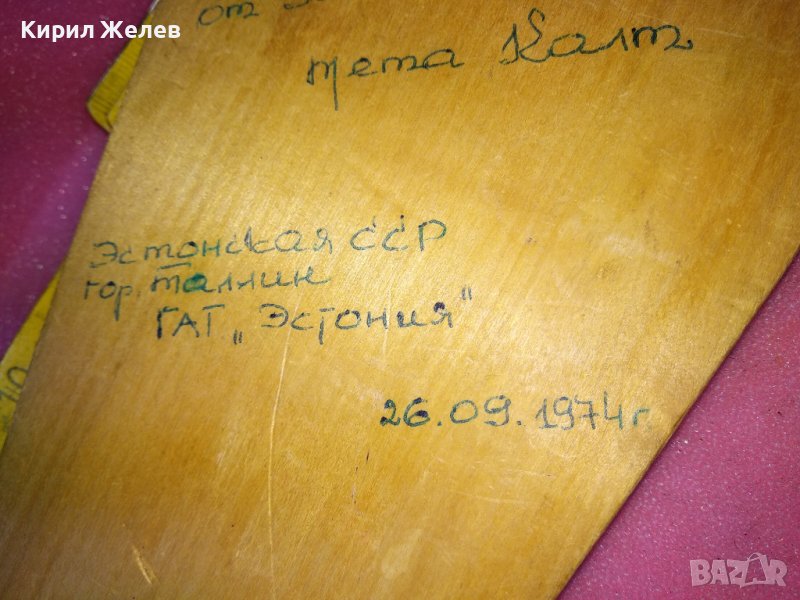 Кирил Желев
от
Мета Калт
Эстонская ССР
гор. Таллин
ГАТ „Эстония"
26.09.1974 г.
BAZAR